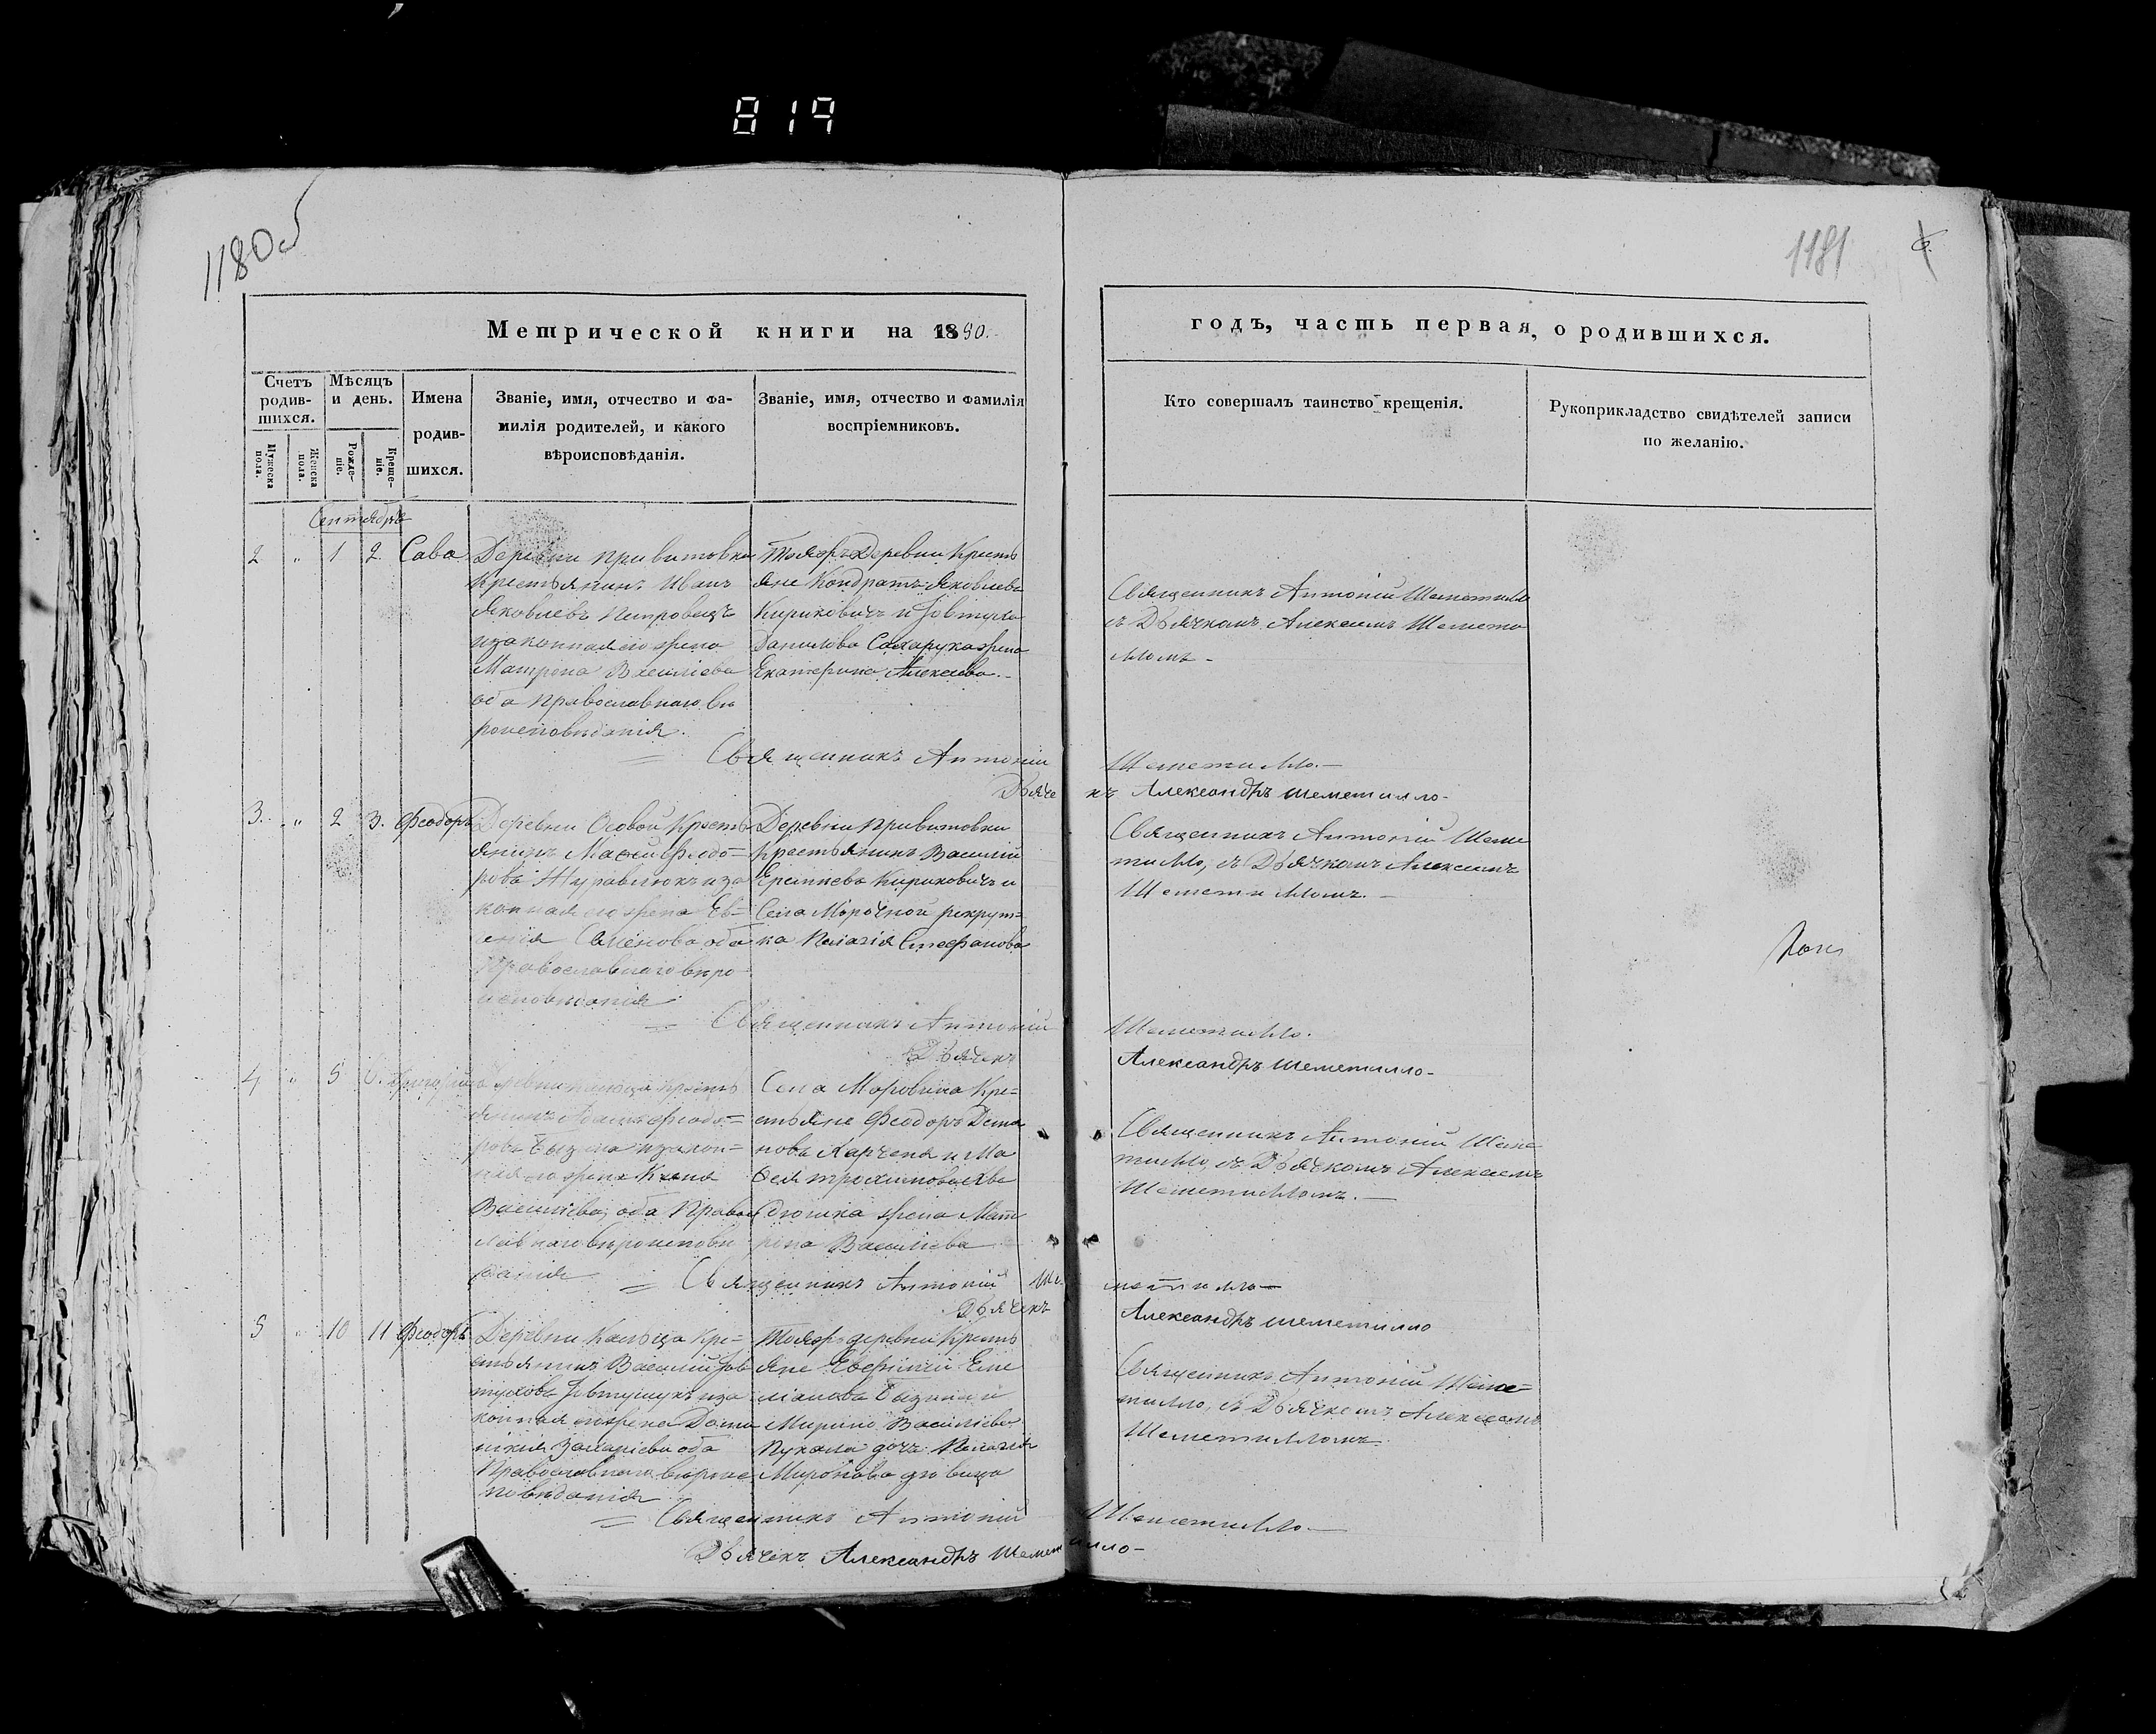 819
1180об
1181
6.
Метрической книги на 1880.
годъ, часть первая, о родившихся.
Счетъ родив-
шихся.
Мужеска
пола.
Женска
пола.
Мѣсяцъ
и день.
Рожде-
ніе.
Креще-
ніе.
Имена
родив-
шихся.
Званіе, имя, отчество и фа-
милія родителей, и какого
вѣроисповѣданія.
Званіе, имя, отчество и фамилія
воспріемниковъ.
Кто совершалъ таинство крещенія.
Рукоприкладство свидѣтелей записи
по желанію.
Сентябрь
2 " 1 2. Сава
Деревни Привитовки
Крестьянинъ Иванъ
Яковлевъ Петровецъ
изаконная его жена
Матрона Василіева
оба Православнаго вѣ
роисповѣданія.
Тояжъ Деревни Кресть
яне Кондратъ Яковлевъ
Кириковичъ и Іовтуха
Данилова Сахарука жена
Екатерина Алексѣева.
Священникъ Антоній Шеметилло
съ Дьячкомъ Алексѣемъ Шемети
лломъ.
Священникъ Антоній Шеметилло.
Дьячекъ Александръ Шеметилло
3. " 2 3. Феодоръ
Деревни Осовой Кресть
янинъ Матѳей Феодо=
ровъ Журавлюкъ иза
конная его жена Ев=
генія Семенова оба
Православнаго вѣро
исповѣданія
Деревни Привитовки
Крестьянинъ Василій
Еремѣевъ Кириковичъ и
Села Морочной рекрут=
ка Пелагія Стефанова
Священникъ Антоній Шеме
тилло, съ Дьячкомъ Алексѣемъ
Шеметилломъ.
Священникъ Антоній Шеметилло.
Дьячекъ Александръ Шеметилло
4 " 5 6. Григорій
Крестъ
янинъ Феодо=
ровъ изакон=
ная его жена
Василіева, оба Правос
лавнаго вѣроисповѣ
данія
Села Моровина Кре=
стьяне Феодоръ Деми
новъ Харченя и Ма
жена Мат
рона Василіева
Священникъ Антоній Шеме
тилло, съ Дьячкомъ Алексѣемъ
Шеметилломъ.
Священникъ Антоній Шеметилло
Дьячекъ Александръ Шеметилло
5 " 10 11 Феодоръ
Деревни Кальца Кре=
стьянинъ Василій Іов
туховъ Іовтушукъ иза
конная его жена Дома
нікія Захаріева оба
Православнаго вѣроис
повѣданія
Тояжъ деревни Кресть
яне Евфимій Еме
ліановъ и
Мирона Василіева
Пукала дочь Пелагія
Миронова дѣвица
Священникъ Антоній Шеме=
тилло, съ Дьячкомъ Алексѣемъ
Шеметилломъ.
Священникъ Антоній Шеметилло.
Дьячекъ Александръ Шеметилло